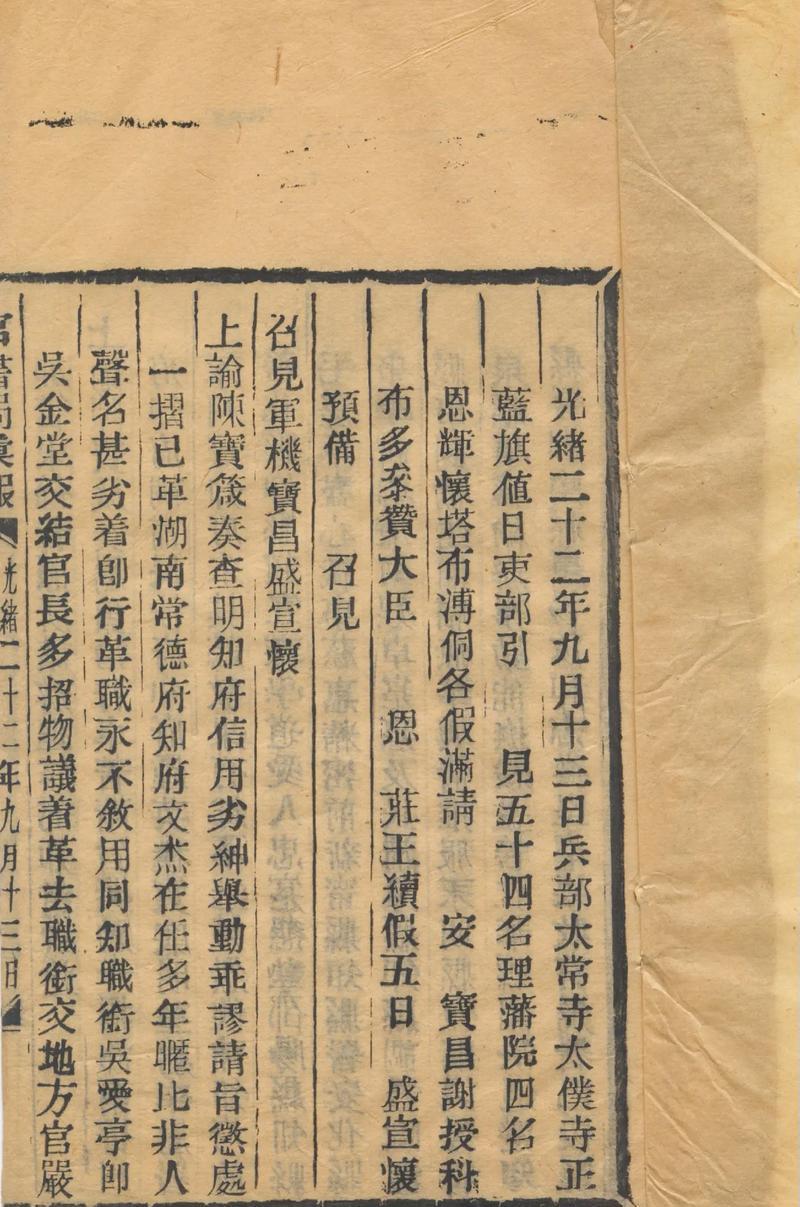 光緒二十二年九月十三日兵部太常寺太僕寺正
藍旗値日吏部引　見五十四名理藩院四名
恩輝懷塔布溥侗各假滿請　安　寶昌謝授科
布多叅贊大臣　恩　莊王續假五日　盛宣懷
預備　召見
召見軍機寶昌盛宣懷
上諭陳寶箴奏查明知府信用劣紳舉動乖謬請旨懲處
一摺已革湖南常德府知府文杰在任多年暱比非人
聲名甚劣着卽行革職永不敘用同知職銜吳愛亭卽
吳金堂交結官長多招物議着革去職銜交地方官嚴
官書局彙報　光緒二十二年九月十三日